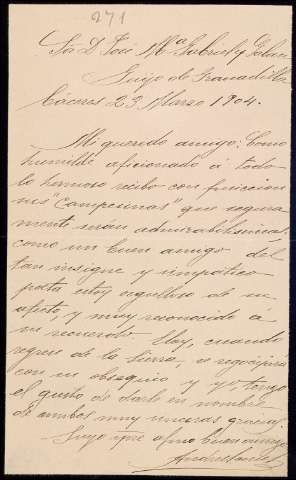 271
Sr. D. José Mª Gabriel y Galán
Guijo de Granadilla
Cáceres 23 Marzo 1904.
Mi querido amigo: Como
humilde aficionado á todo
lo hermoso recibo con fruicion
sus "Campesinas" que segura-
mente serán admirabilísimas.
Como un buen amigo del
tan insigne y simpático
poeta estoy orgulloso de su
afecto y muy reconocido á
su recuerdo. Hoy, cuando
regrese de la Sierra, se regocijará
con su obsequio y yo tengo
el gusto de darle en nombre
de ambos muy sinceras gracias.
Suyo spre. afmo buen amigo